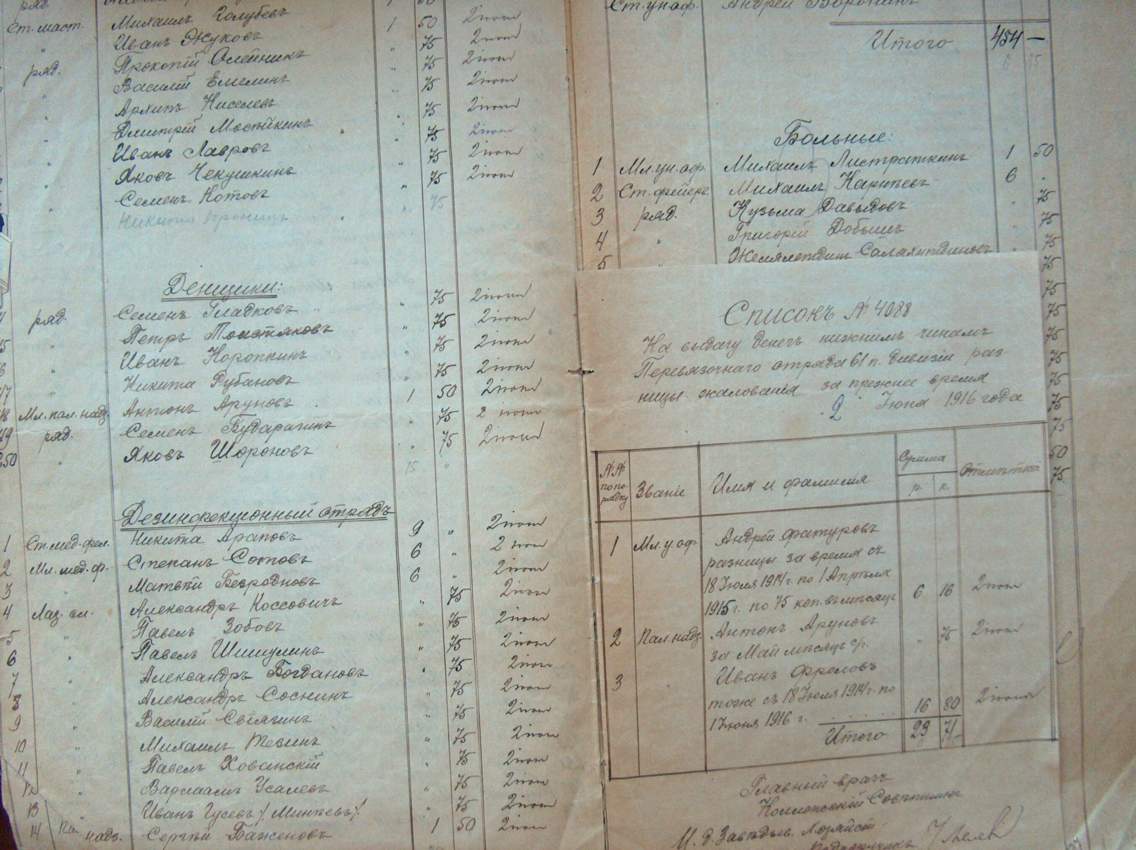 Ст. маст. Михаилъ Голубевъ 1 50 2 іюня
Иванъ Жуковъ " 75 2 іюня
ряд. Прокопій Олейникъ " 75 2 іюня
Василій Емелинъ " 75 2 іюня
Архипъ Киселевъ " 75 2 іюня
Дмитрій Мостикинъ " 75 2 іюня
Иванъ Лавровъ " 75 2 іюня
Яковъ Чекушкинъ " 75 2 іюня
Семенъ Котовъ
Никита
Денщики:
ряд. Семенъ Гладковъ " 75 2 іюня
Петръ " 75 2 іюня
Иванъ Коропкинъ " 75 2 іюня
Никита Рубановъ " 75 2 іюня
Мл. пал. надз. Антонъ Аруновъ 1 50 2 іюня
ряд. Семенъ Бударагинъ " 75 2 іюня
250 Яковъ Шороновъ " 75 2 іюня
Дезинфекціонный отрядъ
1 Ст. мед. фел. Никита Араповъ 9 " 2 іюня
2 Мл. мед. ф. Степанъ Сотовъ 6 " 2 іюня
3 Матвѣй Безродновъ 6 " 2 іюня
4 Лаз. сл. Александръ Коссовичъ " 75 2 іюня
5 Павелъ Зобовъ " 75 2 іюня
6 Павелъ Шишулинъ " 75 2 іюня
7 Александръ Богдановъ " 75 2 іюня
8 Александръ Соснинъ " 75 2 іюня
9 Василій Свѣтягинъ " 75 2 іюня
10 Михаилъ Тезинъ " 75 2 іюня
11 Павелъ Хованскій " 75 2 іюня
12 Варлаамъ Усалевъ " 75 2 іюня
13 Иванъ Гусевъ /Минѣевъ/ " 75 2 іюня
14 Пал. надз. Сергѣй Баженовъ 1 50 2 іюня
Ст. ун. оф. Андрей Воронинъ
Итого 454 —
Больные:
1 Мл. ун. оф. Михаилъ Листраткинъ 1 50
2 Ст. фейерв. Михаилъ Каритевъ 6 "
3 ряд. Кузьма Давыдовъ " 75
4 " Григорій Добышъ " 75
5 " 75
75
75
75
75
75
75
75
50
75
Списокъ № 4088
На выдачу денегъ нижнимъ чинамъ
Перевязочнаго отряда 61 п. дивизіи раз
ницы жалованія за прежнее время
2 Іюня 1916 года
№№ по по рядку Званіе Имя и фамилія Сумма р. к. Отмѣтка
1 Мл. у. оф. Андрей Фатуровъ
разницы за время съ
18 Іюля 1914 г. по 1 Апрѣля
1915 г. по 75 коп. въ мѣсяцъ 6 16 2 іюня
2 Пал. надз. Антонъ Аруновъ
за Май мѣсяцъ с/г. " 75 2 іюня
3 " Иванъ Фроловъ
тоже съ 18 Іюля 1914 г. по
1 Іюня 1916 г. 16 80 2 іюня
Итого 23 71
Главный врачъ
Коллежскій Совѣтникъ